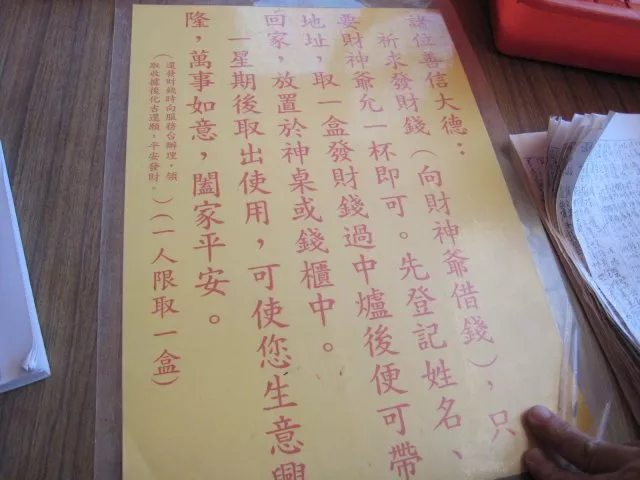 諸位善信大德：
祈求發財錢（向財神爺借錢），只
要財神爺允一杯即可。先登記姓名、
地址，取一盒發財錢過中爐後便可帶
回家，放置於神桌或錢櫃中。
一星期後取出使用，可使您生意興
隆，萬事如意，闔家平安。
（還發財錢時向服務台辦理，領
取收據後化古還願，平安發財。）（一人限取一盒）